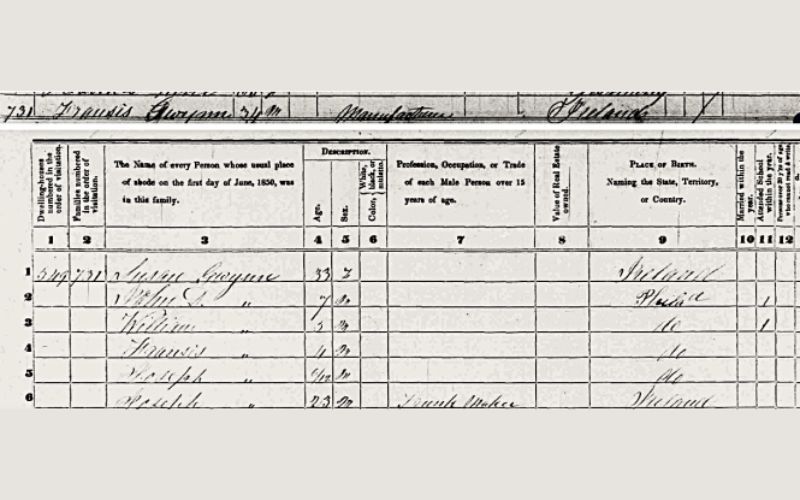 731 Fransis Gwynn 34 M Manufacturer Ireland /
Dwelling-houses numbered in the order of visitation.
Families numbered in the order of visitation.
The Name of every Person whose usual place of abode on the first day of June, 1850, was in this family.
Description.
Age.
Sex.
Color, White, black, or mulatto.
Profession, Occupation, or Trade of each Male Person over 15 years of age.
Value of Real Estate owned.
Place of Birth. Naming the State, Territory, or Country.
Married within the year.
Attended School within the year.
Persons over 20 y'rs of age who cannot read & write.
1 2 3 4 5 6 7 8 9 10 11 12
1 549 731 Susan Gwynn 33 F Ireland
2 John " 7 M Philad 1
3 William " 5 M do 1
4 Fransis " 4 M do
5 Joseph " /12 M do
6 Joseph " 23 M Trunk Maker Ireland